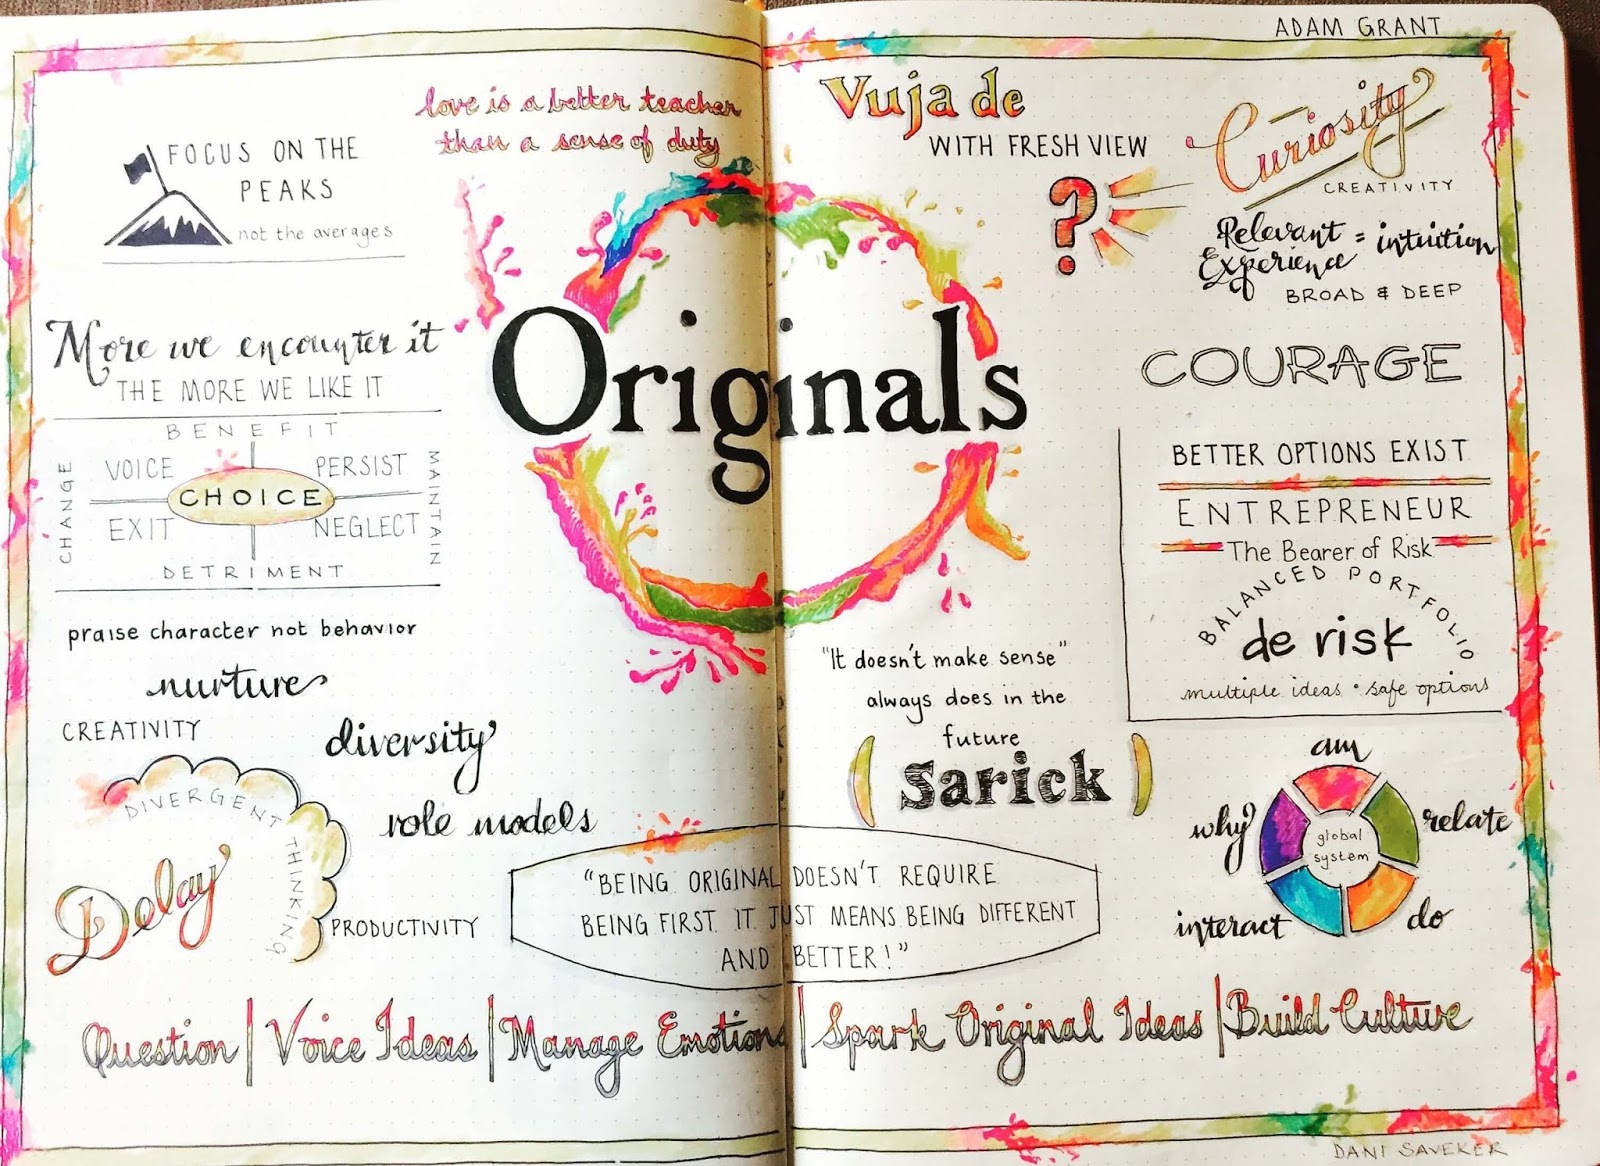 ADAM GRANT
love is a better teacher
than a sense of duty
FOCUS ON THE
PEAKS
not the averages
More we encounter it
THE MORE WE LIKE IT
BENEFIT
CHANGE
VOICE
PERSIST
MAINTAIN
CHOICE
EXIT
NEGLECT
DETRIMENT
praise character not behavior
nurture
CREATIVITY
diversity
role models
DIVERGENT THINKING
Delay
PRODUCTIVITY
Originals
Vuja de
WITH FRESH VIEW
?
Curiosity
CREATIVITY
Relevant = intuition
Experience
BROAD & DEEP
COURAGE
BETTER OPTIONS EXIST
ENTREPRENEUR
The Bearer of Risk
BALANCED PORTFOLIO
de risk
multiple ideas • safe options
"It doesn't make sense"
always does in the
future
(Sarick)
am
why
relate
global
system
interact
do
"BEING ORIGINAL DOESN'T REQUIRE
BEING FIRST. IT JUST MEANS BEING DIFFERENT
AND BETTER!"
Question | Voice Ideas | Manage Emotions | Spark Original Ideas | Build Culture
DANI SAVEKER